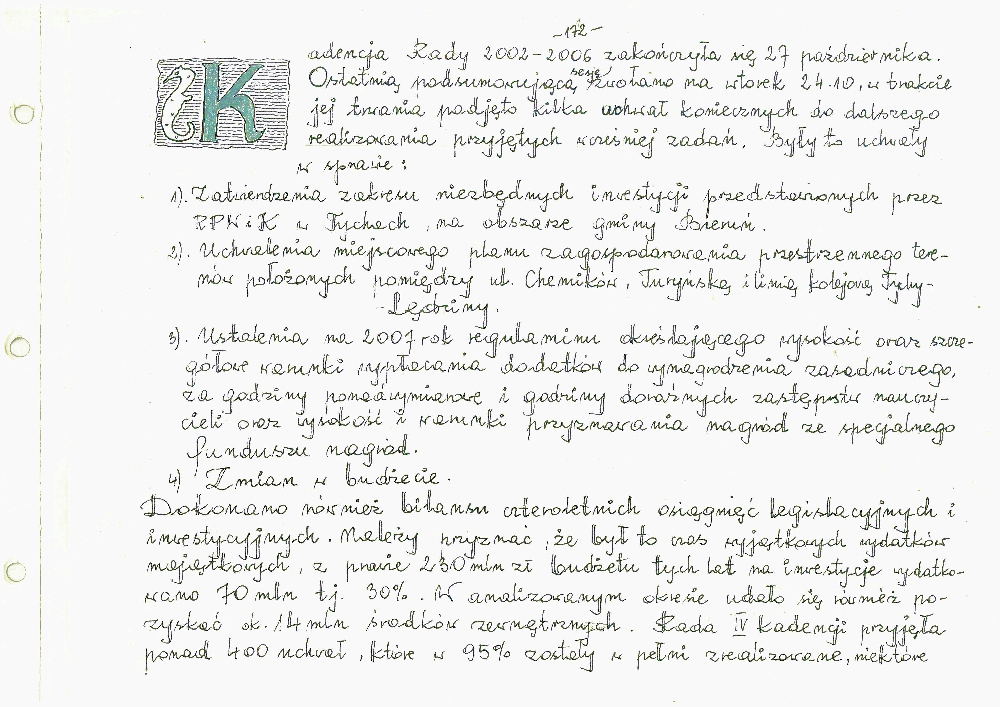 -172-
Kadencja Rady 2002-2006 zakończyła się 27 października.
Ostatnią podsumowującą sesję zwołano na wtorek 24.10, w trakcie
jej trwania podjęto kilka uchwał koniecznych do dalszego
realizowania przyjętych wcześniej zadań. Były to uchwały
w sprawie:
1). Zatwierdzenia zakresu niezbędnych inwestycji przedstawionych przez
RPWiK w Tychach, na obszarze gminy Bieruń.
2). Uchwalenia miejscowego planu zagospodarowania przestrzennego tere-
nów położonych pomiędzy ul. Chemików, Turyńską i linią kolejową Tychy-
-Lędziny.
3). Ustalenia na 2007 rok regulaminu określającego wysokość oraz szcze-
gółowe warunki wypłacania dodatków do wynagrodzenia zasadniczego,
za godziny ponadwymiarowe i godziny doraźnych zastępstw nauczy-
cieli oraz wysokość i warunki przyznawania nagród ze specjalnego
funduszu nagród.
4) Zmian w budżecie.
Dokonano również bilansu czteroletnich osiągnięć legislacyjnych i
inwestycyjnych. Należy przyznać, że był to czas wyjątkowych wydatków
majątkowych, z prawie 230 mln zł budżetu tych lat na inwestycje wydatko-
wano 70 mln tj. 30%. W analizowanym okresie udało się również po-
zyskać ok. 14 mln środków zewnętrznych. Rada IV kadencji przyjęła
ponad 400 uchwał, które w 95% zostały w pełni zrealizowane, niektóre